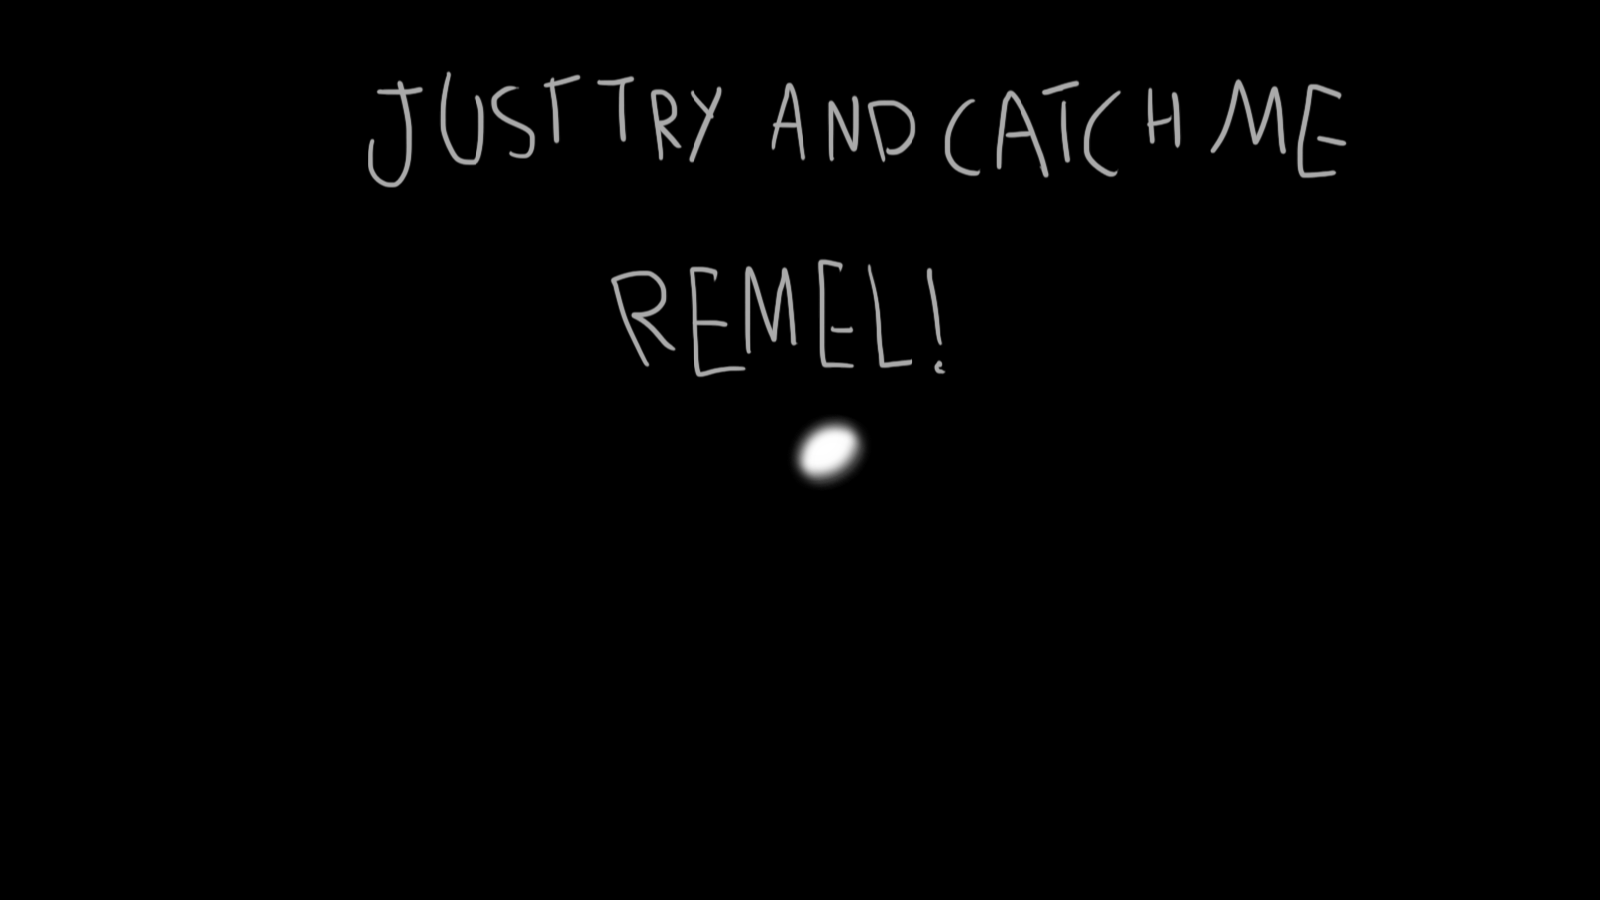 JUST TRY AND CATCH ME
REMEL!